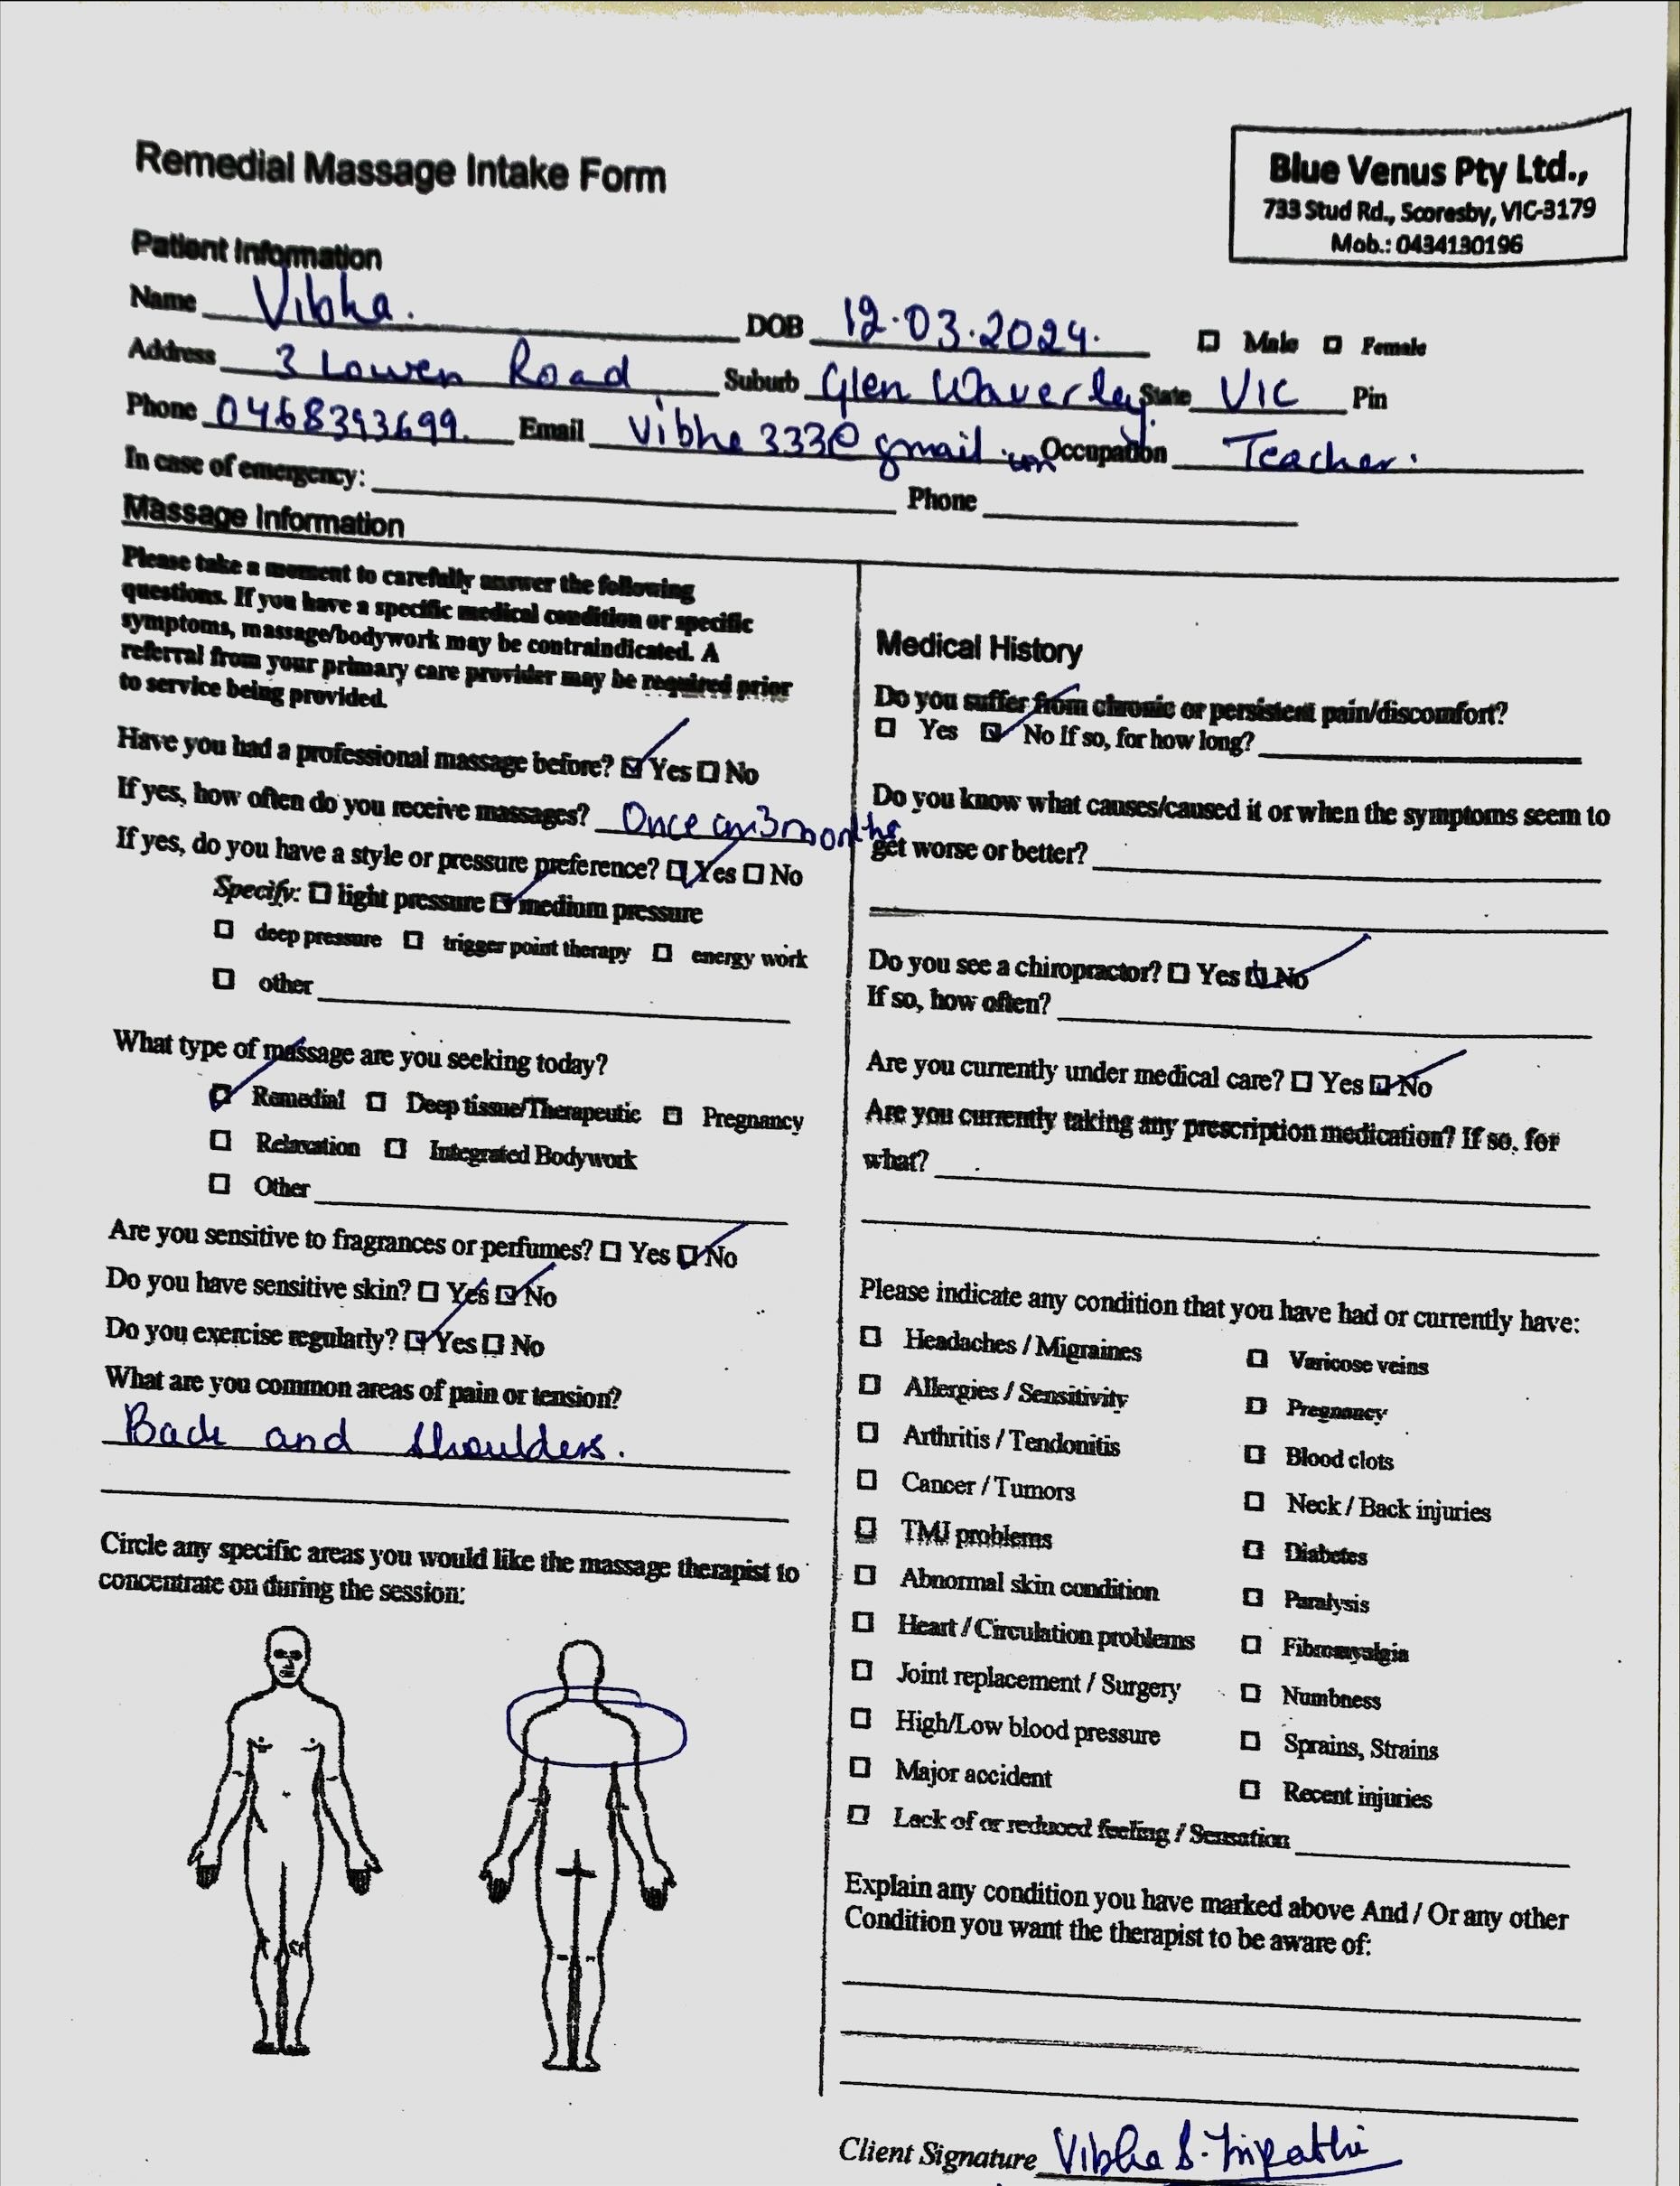 Remedial Massage Intake Form
Blue Venus Pty Ltd.,
733 Stud Rd., Scoresby, VIC-3179
Mob.: 0434130196
Patient Information
Name Vibha. DOB 12.03.2024. ☐ Male ☐ Female
Address 3 Lowen Road Suburb Glen Waverley State VIC Pin
Phone 0468393699. Email Vibha333@gmail.com Occupation Teacher.
In case of emergency: Phone
Massage Information
Please take a moment to carefully answer the following
questions. If you have a specific medical condition or specific
symptoms, massage/bodywork may be contraindicated. A
referral from your primary care provider may be required prior
to service being provided.
Have you had a professional massage before? ☑ Yes ☐ No
If yes, how often do you receive massages? Once in 3 months
If yes, do you have a style or pressure preference? ☑ Yes ☐ No
Specify: ☐ light pressure ☑ medium pressure
☐ deep pressure ☐ trigger point therapy ☐ energy work
☐ other
What type of massage are you seeking today?
☑ Remedial ☐ Deep tissue/Therapeutic ☐ Pregnancy
☐ Relaxation ☐ Integrated Bodywork
☐ Other
Are you sensitive to fragrances or perfumes? ☐ Yes ☑ No
Do you have sensitive skin? ☐ Yes ☑ No
Do you exercise regularly? ☑ Yes ☐ No
What are you common areas of pain or tension?
Back and Shoulders.
Circle any specific areas you would like the massage therapist to
concentrate on during the session:
Medical History
Do you suffer from chronic or persistent pain/discomfort?
☐ Yes ☑ No If so, for how long?
Do you know what causes/caused it or when the symptoms seem to
get worse or better?
Do you see a chiropractor? ☐ Yes ☑ No
If so, how often?
Are you currently under medical care? ☐ Yes ☑ No
Are you currently taking any prescription medication? If so, for
what?
Please indicate any condition that you have had or currently have:
☐ Headaches / Migraines ☐ Varicose veins
☐ Allergies / Sensitivity ☐ Pregnancy
☐ Arthritis / Tendonitis ☐ Blood clots
☐ Cancer / Tumors ☐ Neck / Back injuries
☐ TMJ problems ☐ Diabetes
☐ Abnormal skin condition ☐ Paralysis
☐ Heart / Circulation problems ☐ Fibromyalgia
☐ Joint replacement / Surgery ☐ Numbness
☐ High/Low blood pressure ☐ Sprains, Strains
☐ Major accident ☐ Recent injuries
☐ Lack of or reduced feeling / Sensation
Explain any condition you have marked above And / Or any other
Condition you want the therapist to be aware of:
Client Signature Vibha S. Tripathi